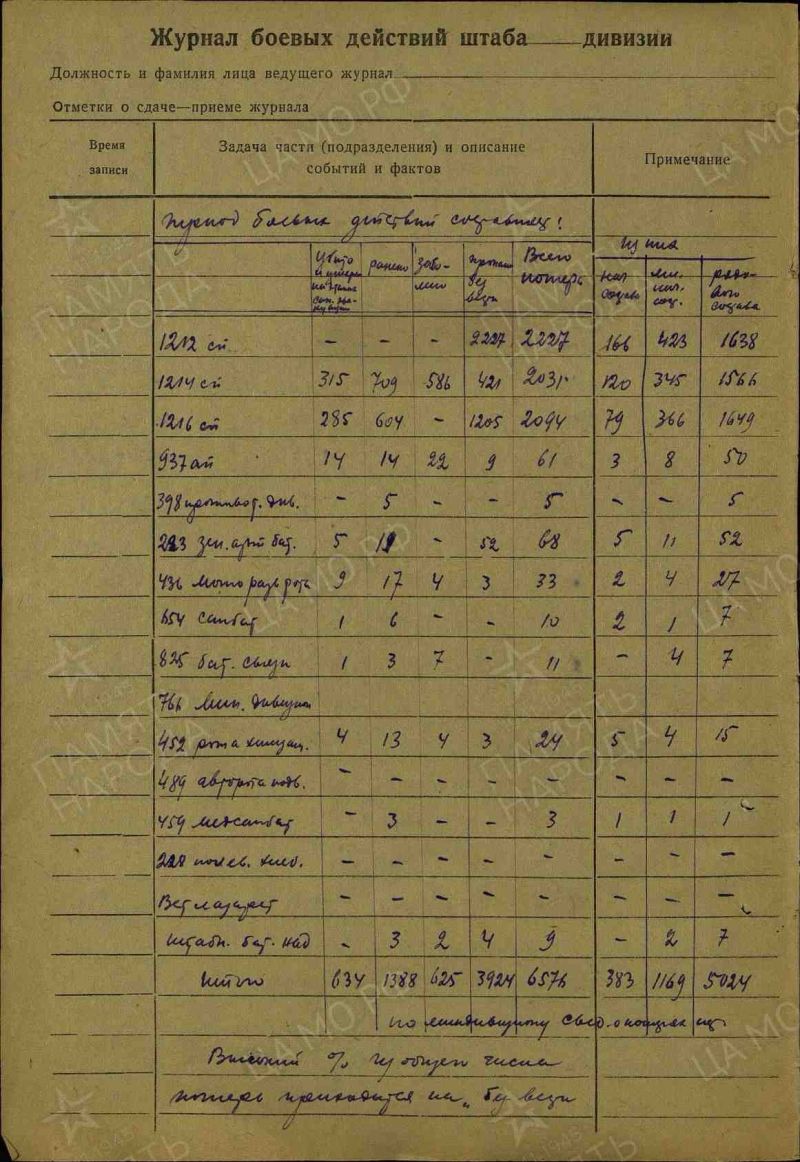 Журнал боевых действий штаба дивизии
Должность и фамилия лица ведущего журнал
Отметки о сдаче—приеме журнала
Время записи
Задача части (подразделения) и описание событий и фактов
Примечание
период боевых действий
Убито и ранено забо- пропали без вести Всего потерь Из них нач состава мл. нач. сос. рядового состава
1212 сп - - - 2227 2227 166 423 1638
1214 сп 315 709 586 421 2031 120 345 1566
1216 сп 285 604 - 1205 2094 79 366 1649
937 ап 14 14 22 9 61 3 8 50
398 противот. див. - 5 - - 5 - - 5
223 зен. арт бат. 5 - 52 68 5 11 52
436 мото разв рота 9 17 4 3 33 2 4 27
654 санбат 1 6 - - 10 2 1 7
825 бат. связи 1 3 7 - 11 - 4 7
766 мин. дивизион
452 рота 4 13 4 3 24 5 4 15
489 авторота подв. - - - - - - - -
459 медсанбат - 3 - - 3 1 1 1
228 хлеб. - - - - - - - -
Ветлазарет - - - - - - - -
штабн. бат. - 3 2 4 9 - 2 7
Итого 634 1388 625 3924 6576 383 1169 5024
по
Высокий % из общего числа
потерь приходится на „ без вести